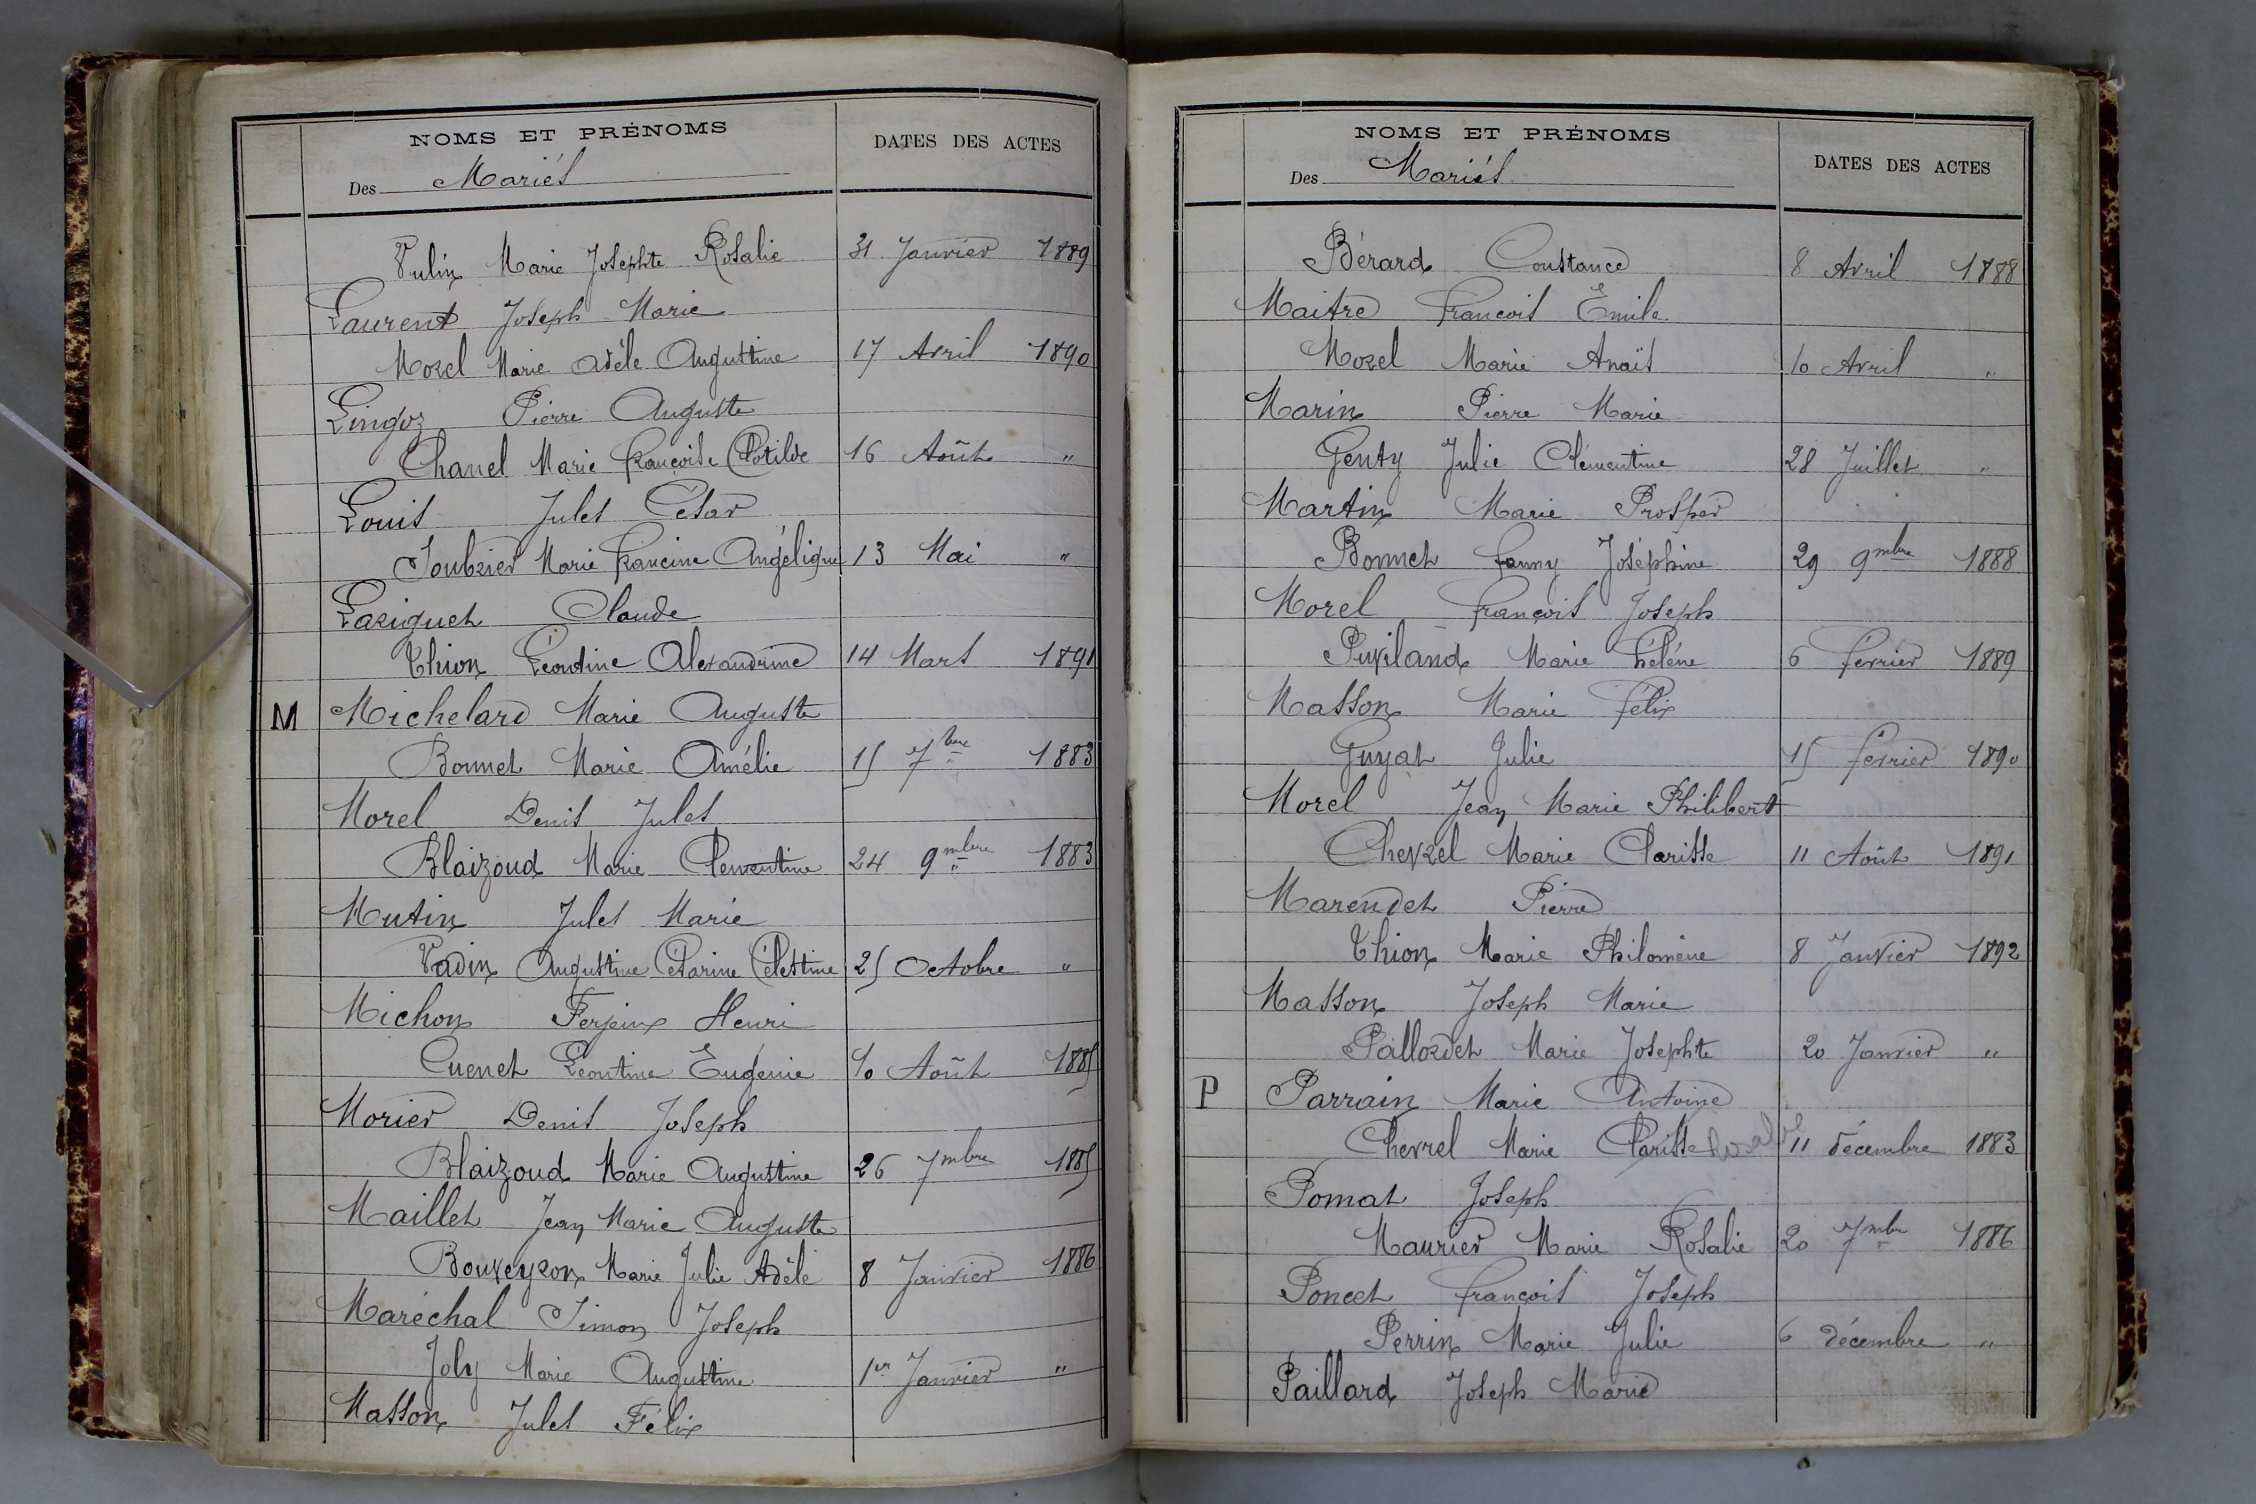 NOMS ET PRÉNOMS
DATES DES ACTES
Des Mariés
Vulin Marie Josephte Rosalie 31 Janvier 1889
Laurent Joseph Marie
Morel Marie Adèle Augustine 17 Avril 1890
Lingoz Pierre Auguste
Chanel Marie Françoise Clotilde 16 Août "
Louis Jules César
Soubrier Marie Francine Angélique 13 Mai "
Lariguet Claude
Thion Léontine Alexandrine 14 Mars 1891
M Michelard Marie Auguste
Bonnet Marie Amélie 15 7bre 1883
Morel Denis Jules
Blaizoud Marie Clementine 24 9mbre 1883
Mutin Jules Marie
Vadin Augustine Césarine Célestine 25 Octobre "
Michon Ferjeux Henri
Cuenet Léontine Eugénie 10 Août 1885
Morier Denis Joseph
Blaizoud Marie Augustine 26 7mbre 1885
Maillet Jean Marie Auguste
Bouveyron Marie Julie Adèle 8 Janvier 1886
Maréchal Simon Joseph
Joly Marie Augustine 1er Janvier "
Masson Jules Félix
NOMS ET PRÉNOMS
DATES DES ACTES
Des Mariés
Bérard Constance 8 Avril 1888
Maitre François Emile
Morel Marie Anaïs 10 Avril "
Marin Pierre Marie
Genty Julie Clémentine 28 Juillet "
Martin Marie Prosper
Bonnet Fanny Joséphine 29 9mbre 1888
Morel François Joseph
Puviland Marie Héléne 6 Février 1889
Masson Marie Félix
Guyat Julie 15 Février 1890
Morel Jean Marie Philibert
Chevrel Marie Clarisse 11 Août 1891
Marendet Pierre
Thion Marie Philomène 8 Janvier 1892
Masson Joseph Marie
Paillordet Marie Josephte 20 Janvier "
P Parrain Marie Antoine
Chevrel Marie Clarisse Rosalie 11 décembre 1883
Pomat Joseph
Maurier Marie Rosalie 20 7mbre 1886
Poncet François Joseph
Perrin Marie Julie 6 décembre "
Paillard Joseph Marie